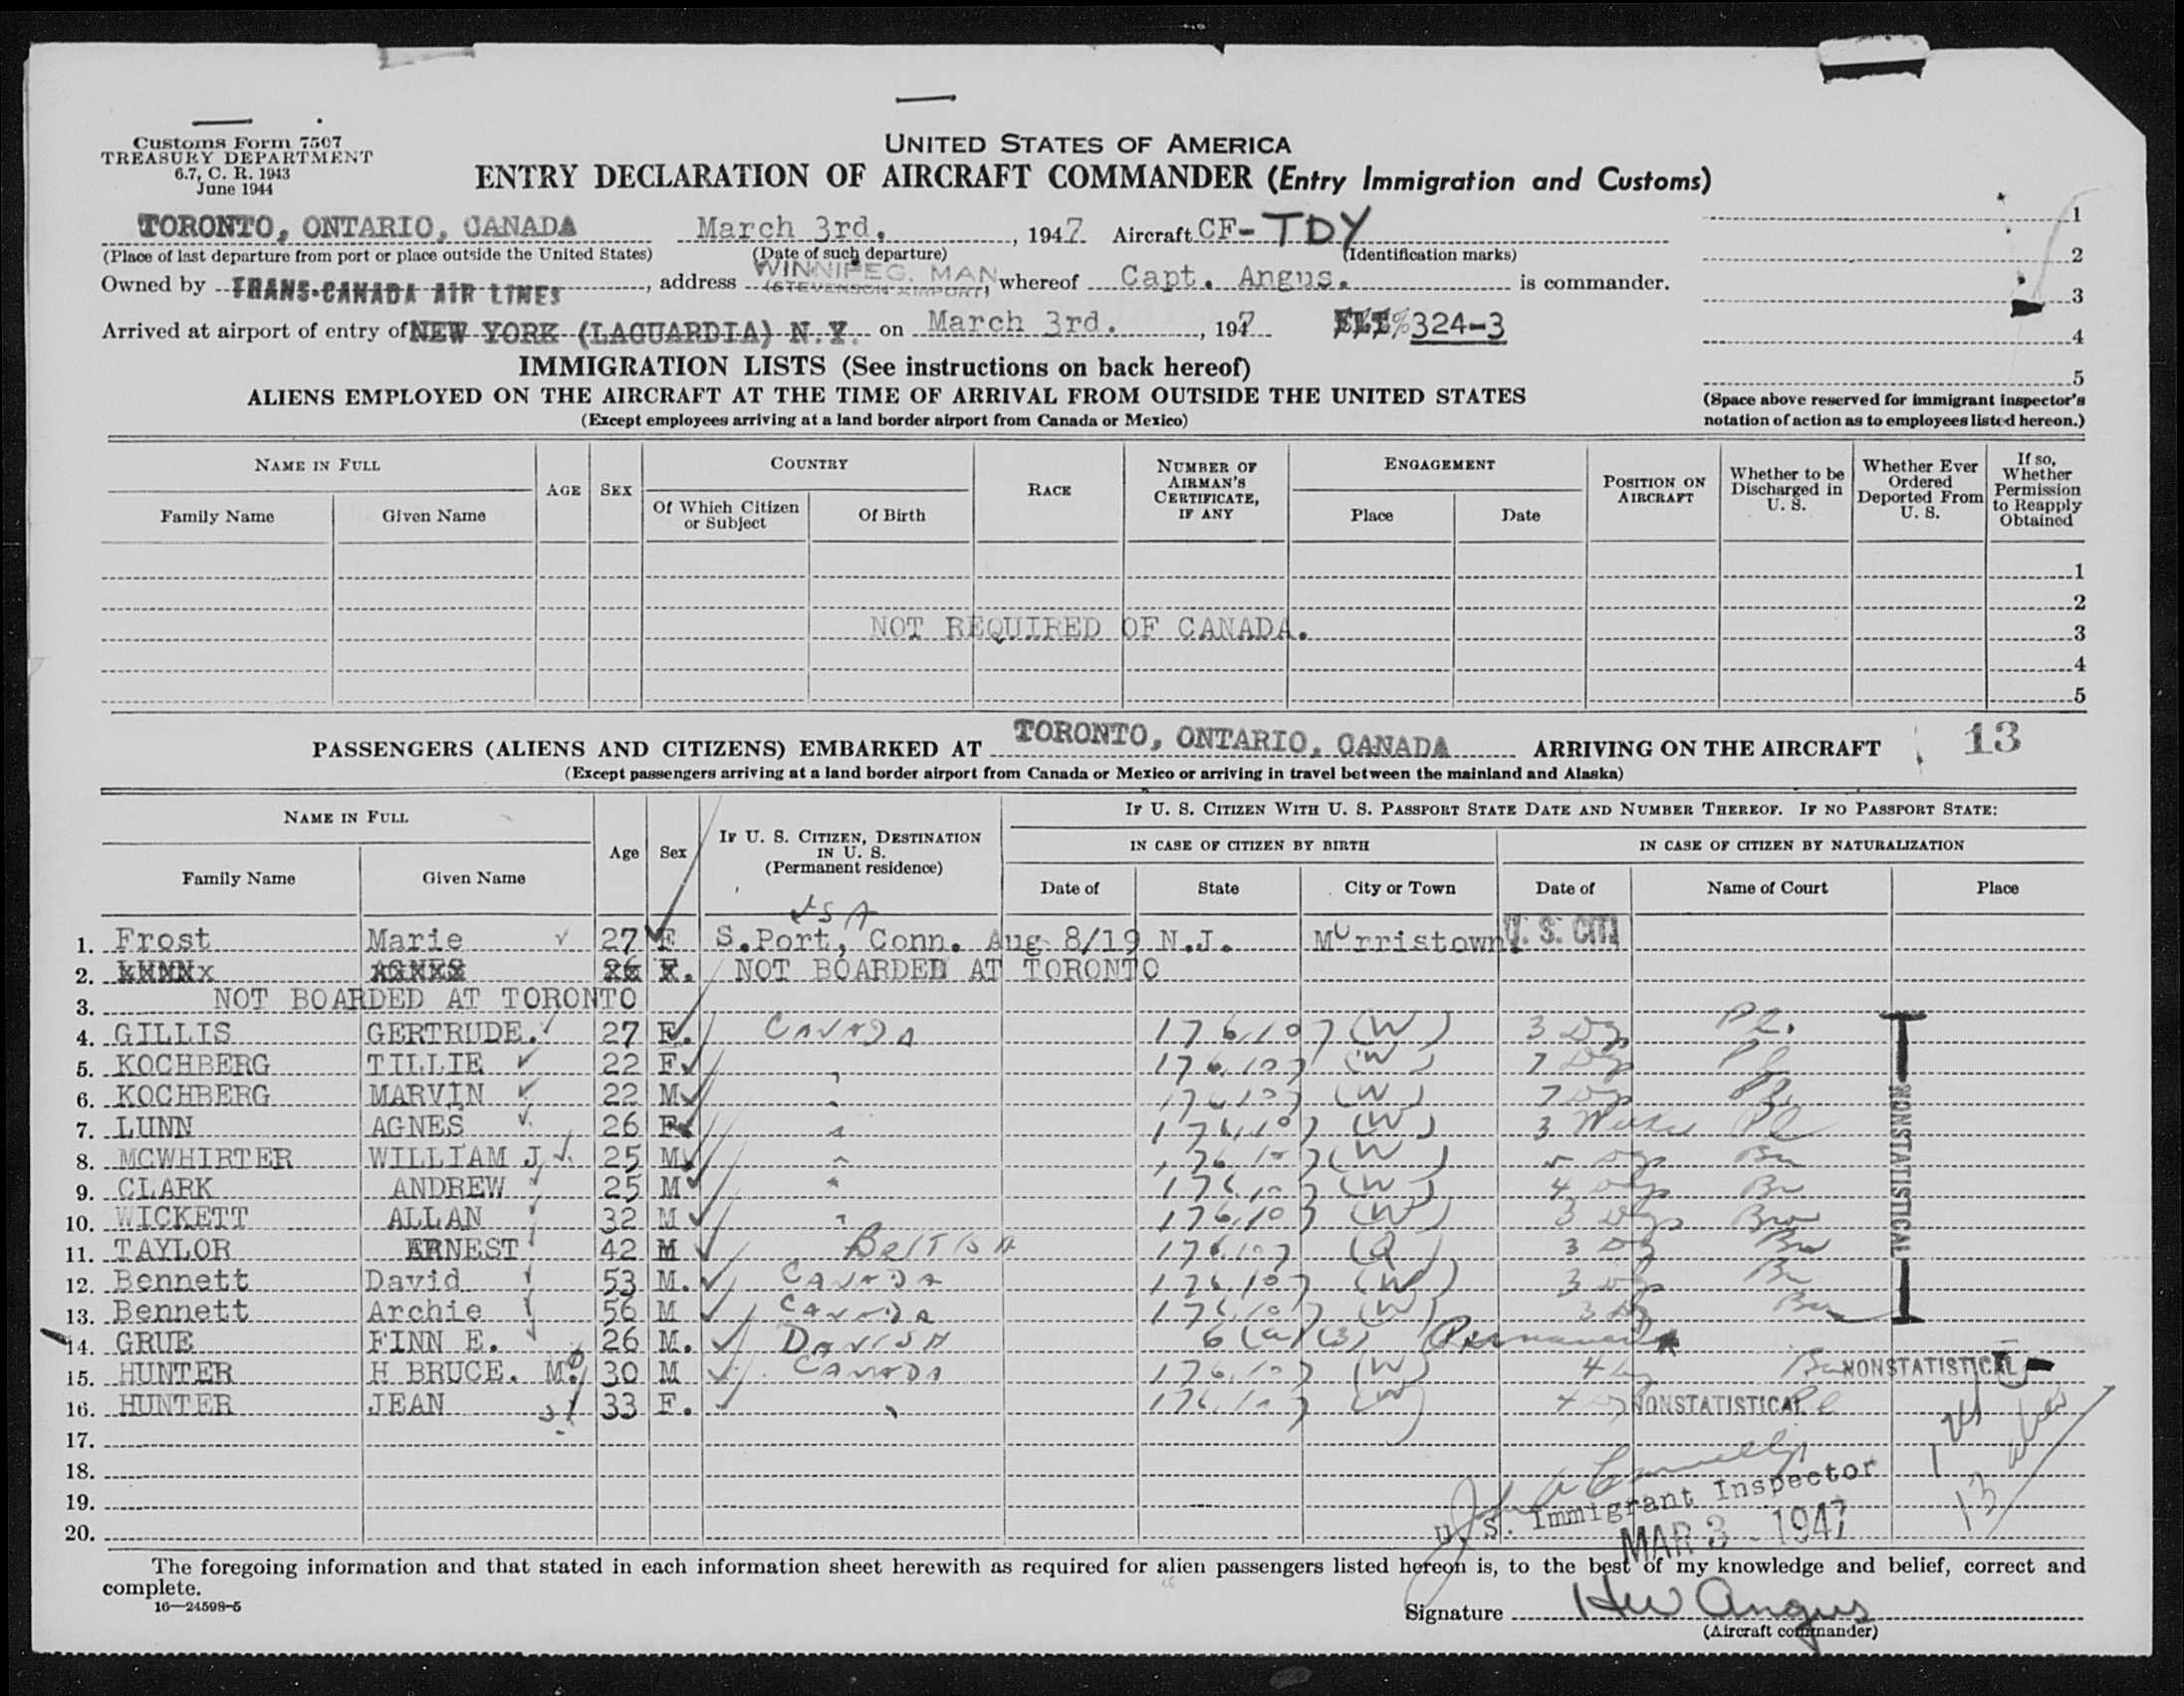 Customs Form 7507
TREASURY DEPARTMENT
6.7, C. R. 1943
June 1944
UNITED STATES OF AMERICA
ENTRY DECLARATION OF AIRCRAFT COMMANDER (Entry Immigration and Customs)
TORONTO, ONTARIO, CANADA March 3rd. , 1947 Aircraft CF-TDY 1
(Place of last departure from port or place outside the United States) (Date of such departure) (Identification marks) 2
Owned by TRANS-CANADA AIR LINES, address WINNIPEG, MAN (STEVENSON AIRPORT) whereof Capt. Angus. is commander.
3
Arrived at airport of entry of NEW YORK (LAGUARDIA) N.Y. on March 3rd. , 1947 324-3
4
IMMIGRATION LISTS (See instructions on back hereof)
5
ALIENS EMPLOYED ON THE AIRCRAFT AT THE TIME OF ARRIVAL FROM OUTSIDE THE UNITED STATES
(Except employees arriving at a land border airport from Canada or Mexico)
(Space above reserved for immigrant inspector's
notation of action as to employees listed hereon.)
NAME IN FULL
Family Name Given Name
AGE SEX
COUNTRY
Of Which Citizen or Subject Of Birth
RACE
NUMBER OF AIRMAN'S CERTIFICATE, IF ANY
ENGAGEMENT
Place Date
POSITION ON AIRCRAFT
Whether to be Discharged in U. S.
Whether Ever Ordered Deported From U. S.
If so, Whether Permission to Reapply Obtained
1
2
NOT REQUIRED OF CANADA. 3
4
5
PASSENGERS (ALIENS AND CITIZENS) EMBARKED AT TORONTO, ONTARIO, CANADA ARRIVING ON THE AIRCRAFT 13
(Except passengers arriving at a land border airport from Canada or Mexico or arriving in travel between the mainland and Alaska)
NAME IN FULL
Family Name Given Name
Age Sex
IF U. S. CITIZEN, DESTINATION IN U. S. (Permanent residence)
IF U. S. CITIZEN WITH U. S. PASSPORT STATE DATE AND NUMBER THEREOF. IF NO PASSPORT STATE:
IN CASE OF CITIZEN BY BIRTH IN CASE OF CITIZEN BY NATURALIZATION
Date of State City or Town Date of Name of Court Place
USA
1. Frost Marie 27 F S.Port, Conn. Aug 8/19 N.J. Morristown. U. S. CIT
2. LUNN AGNES 26 F. NOT BOARDED AT TORONTO
3. NOT BOARDED AT TORONTO
4. GILLIS GERTRUDE. 27 F. CANADA 176.107 (W) 3 Dys Pl.
5. KOCHBERG TILLIE 22 F " 176.107 (W) 7 Dys Pl
6. KOCHBERG MARVIN 22 M " 176.107 (W) 7 Dys Pl
7. LUNN AGNES 26 F " 176.107 (W) 3 Weeks Pl
8. MCWHIRTER WILLIAM J. 25 M. " 176.107 (W) Dys Bu
9. CLARK ANDREW 25 M " 176.107 (W) 4 Dys Bu
10. WICKETT ALLAN 32 M " 176.107 (W) 3 Dys Bus
11. TAYLOR ERNEST 42 M BRITISH 176.107 (Q) 3 Dy Bu
12. Bennett David 53 M. CANADA 176.107 (W) 3 Dys Bu
13. Bennett Archie 56 M CANADA 176.107 (W) 3 Dy Bu
NONSTATISTICAL
14. GRUE FINN E. 26 M. DANISH 6(a)(3) Permanent
15. HUNTER H BRUCE. M. 30 M CANADA 176.107 (W) 4 Dy Bu NONSTATISTICAL
16. HUNTER JEAN 33 F. " 176.107 (W) 4 Dy NONSTATISTICAL Pl
17.
18.
19.
20.
U. S. Immigrant Inspector
MAR 3 - 1947
The foregoing information and that stated in each information sheet herewith as required for alien passengers listed hereon is, to the best of my knowledge and belief, correct and
complete.
16—24598-5
Signature HW Angus
(Aircraft commander)